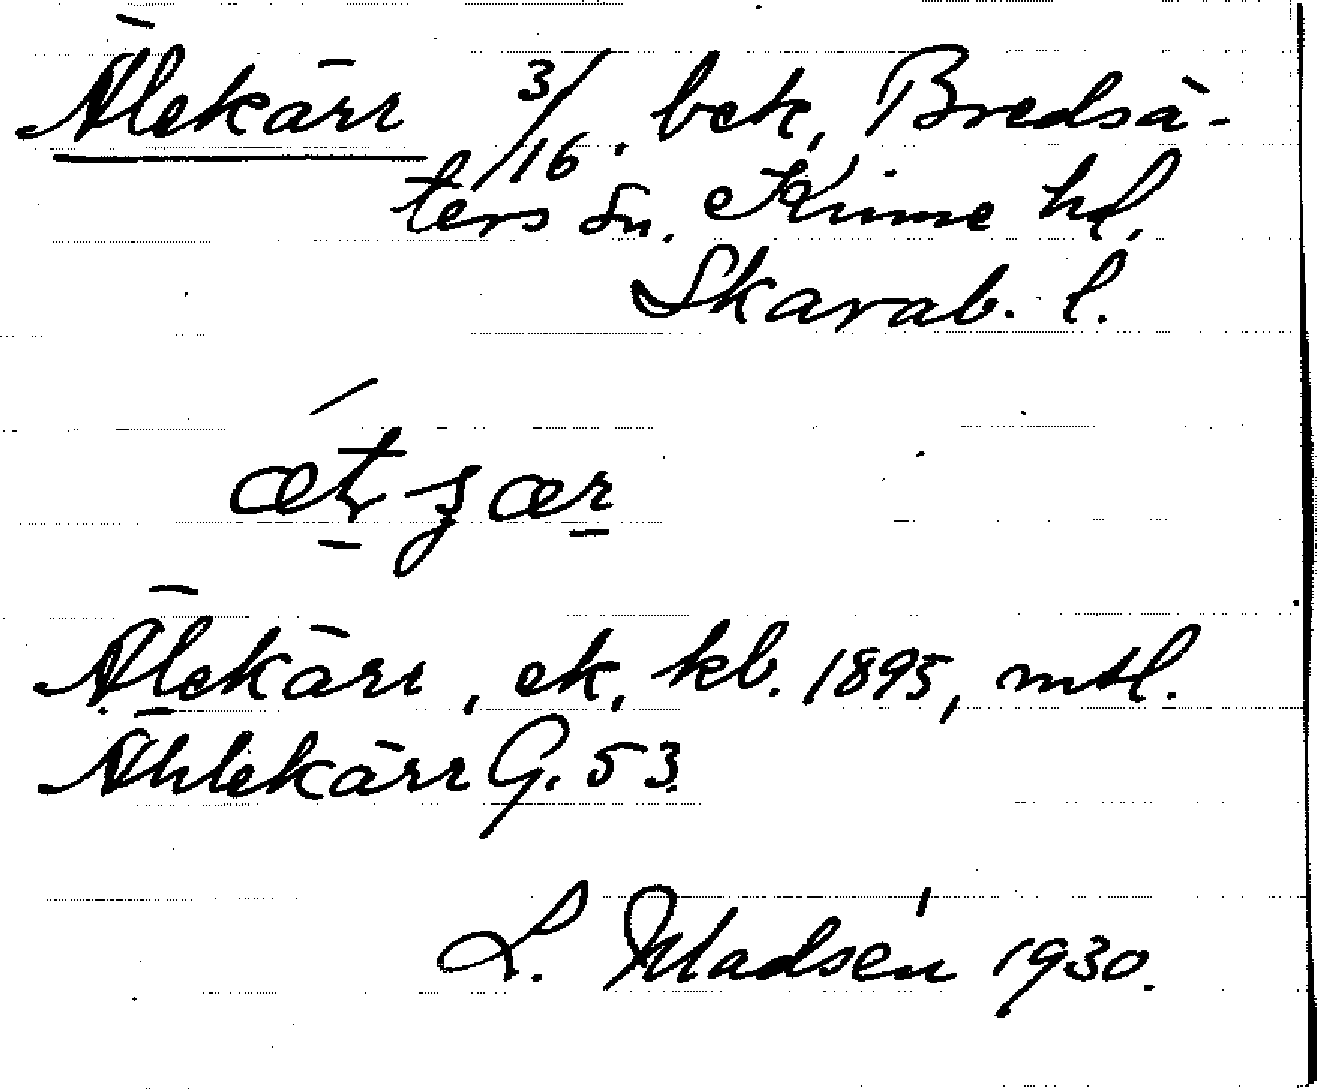 Älekärr 3/16. bek, Bredsä-
ters sn. Kinne hd,
Skarab. l.
Älekärr, ek, kb. 1895, mtl.
Ählekärr G. 53.
L. Madsén 1930.